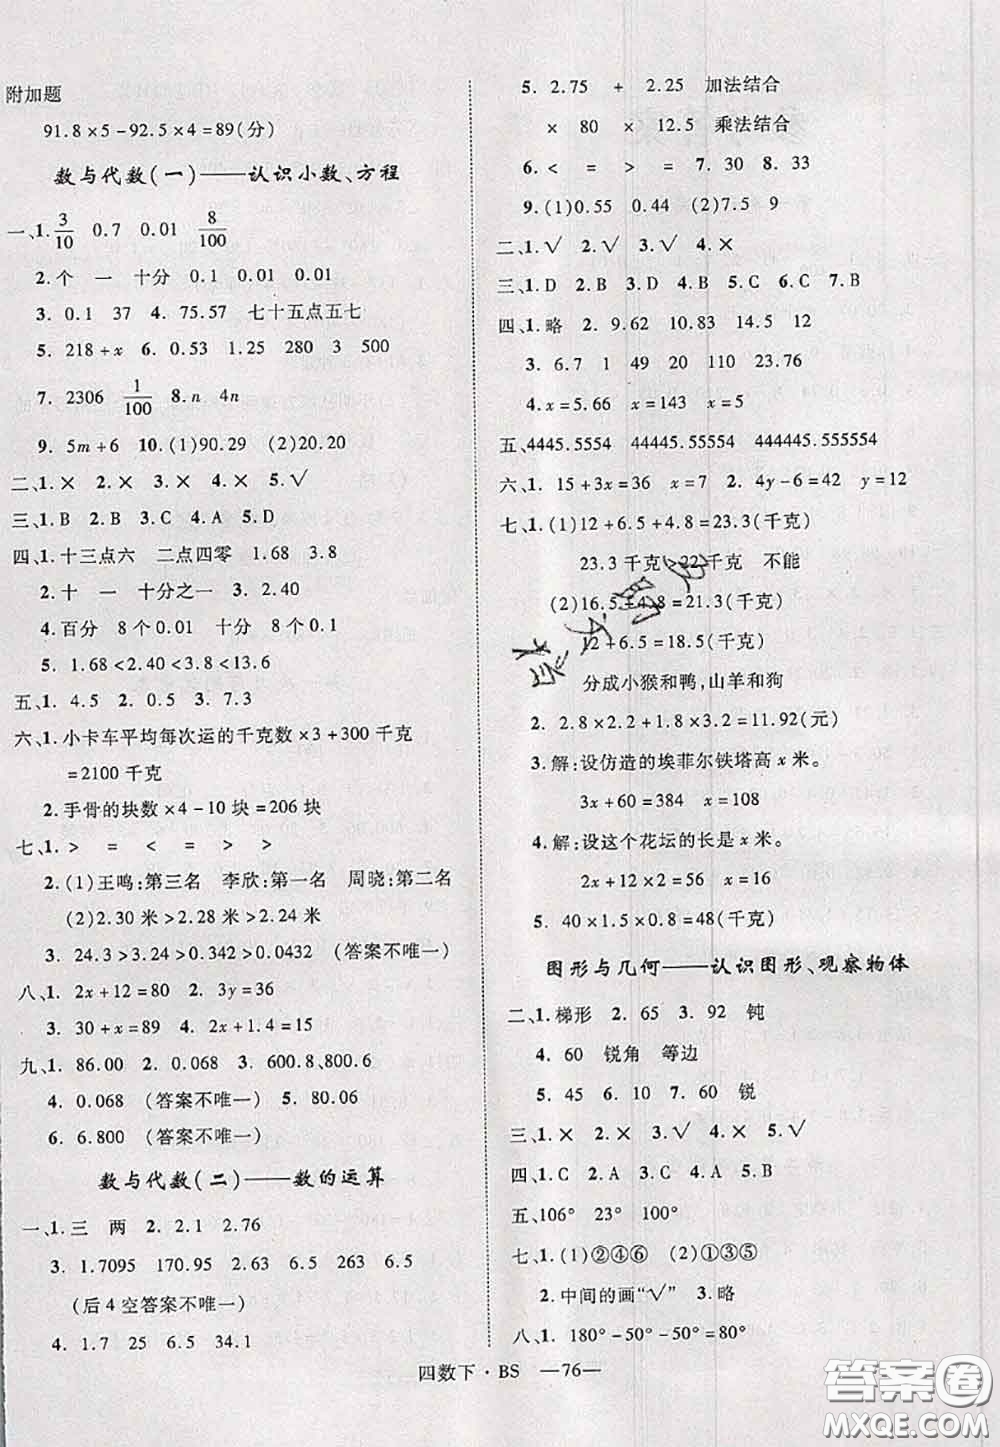 附加题
91.8×5-92.5×4=89(分)
数与代数(一)——认识小数、方程
一、1. 3/10 0.7 0.01 8/100
2. 个 一 十分 0.1 0.01 0.01
3. 0.1 37 4. 75.57 七十五点五七
5. 218+x 6. 0.53 1.25 280 3 500
7. 2306 1/100 8. n 4n
9. 5m+6 10. (1)90.29 (2)20.20
二、1. × 2. × 3. × 4. × 5. √
三、1. B 2. B 3. C 4. A 5. D
四、1. 十三点六 二点四零 1.68 3.8
2. 十 一 十分之一 3. 2.40
4. 百分 8个0.01 8个0.1
5. 1.68<2.40<3.8<13.6
五、1. 4.5 2. 0.5 3. 7.3
六、1. 小卡车平均每次运的千克数×3+300千克
=2100千克
2. 手骨的块数×4-10块=206块
七、1. > = < = > >
2. (1)王鸣:第三名 李欣:第一名 周晓:第二名
(2)2.30米>2.28米>2.19米
3. 24.3>3.24>0.342>0.0432 (答案不唯一)
八、1. 2x+12=80 2. 3y=36
3. 30+x=89 4. 2x+1.4=15
九、1. 86.00 2. 0.068 3. 600.8、800.6
4. 0.068 (答案不唯一) 5. 80.06
6. 6.800 (答案不唯一)
数与代数(二)——数的运算
一、1. 三 两 2. 2.1 2.76
3. 1.7095 170.95 2.63 6.5 263 6.5
(后4空答案不唯一)
4. 1.7 25 6.5 34.1
5. 2.75 + 2.25 加法结合
× 80 × 12.5 乘法结合
6. < = > > 7. 30 8. 33
9. (1)0.55 0.44 (2)7.5 9
二、1. √ 2. √ 3. √ 4. ×
三、1. D 2. B 3. D 4. B 5. C 6. C 7. B
四、1. 略 2. 9.62 10.83 14.5 12
3. 6.7 1 49 20 110 23.76
4. x=5.66 x=143 x=5
五、4445.5554 44445.55554 444445.555554
六、1. 15+3x=36 x=7 2. 4y-6=42 y=12
七、1. (1)12+6.5+4.8=23.3(千克)
23.3千克>22千克 不能
(2)16.5+4.8=21.3(千克)
12+6.5=18.5(千克)
分成小猴和鸭,山羊和狗
2. 2.8×2.2+1.8×3.2=11.92(元)
3. 解:设仿造的埃菲尔铁塔高x米。
3x+60=384 x=108
4. 解:设这个花坛的长是x米。
2x+12×2=56 x=16
5. 40×1.5×0.8=48(千克)
图形与几何——认识图形、观察物体
二、1. 梯形 2. 65 3. 92 钝
4. 60 锐角 等边
5. 45 6. 10 7. 60 锐
三、1. × 2. × 3. √ 4. × 5. √
四、1. C 2. A 3. C 4. A 5. B
五、106° 23° 100°
七、1. (1)②④⑥ (2)①③⑤
2. 中间的画“√” 3. 略
八、1. 180°-50°-50°=80°
四数下·BS —76—
答案圈
MXQE.COM